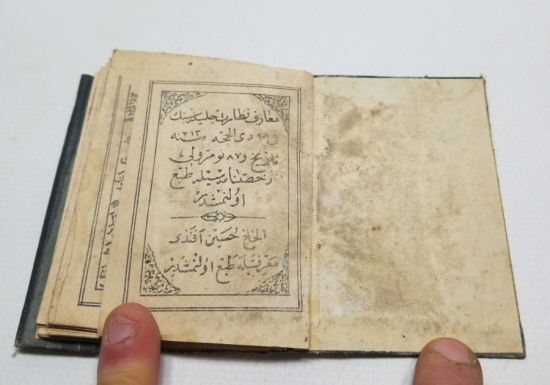 معارف نظارت جليله سينك
و ٢٨ ذى الحجه سنه ٢١٣
تاريخ و ٨٧ نومرولى
رخصتنامه سيله طبع
اولنمشدر
الحاج حسين افندى
معرفتيله طبع اولنمشدر